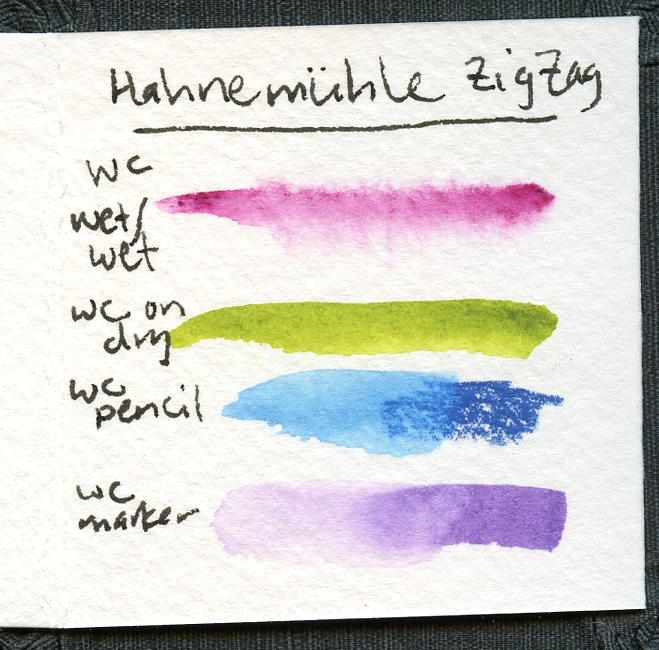 Hahnemühle ZigZag
wc
wet/
wet
wc on
dry
wc
pencil
wc
marker